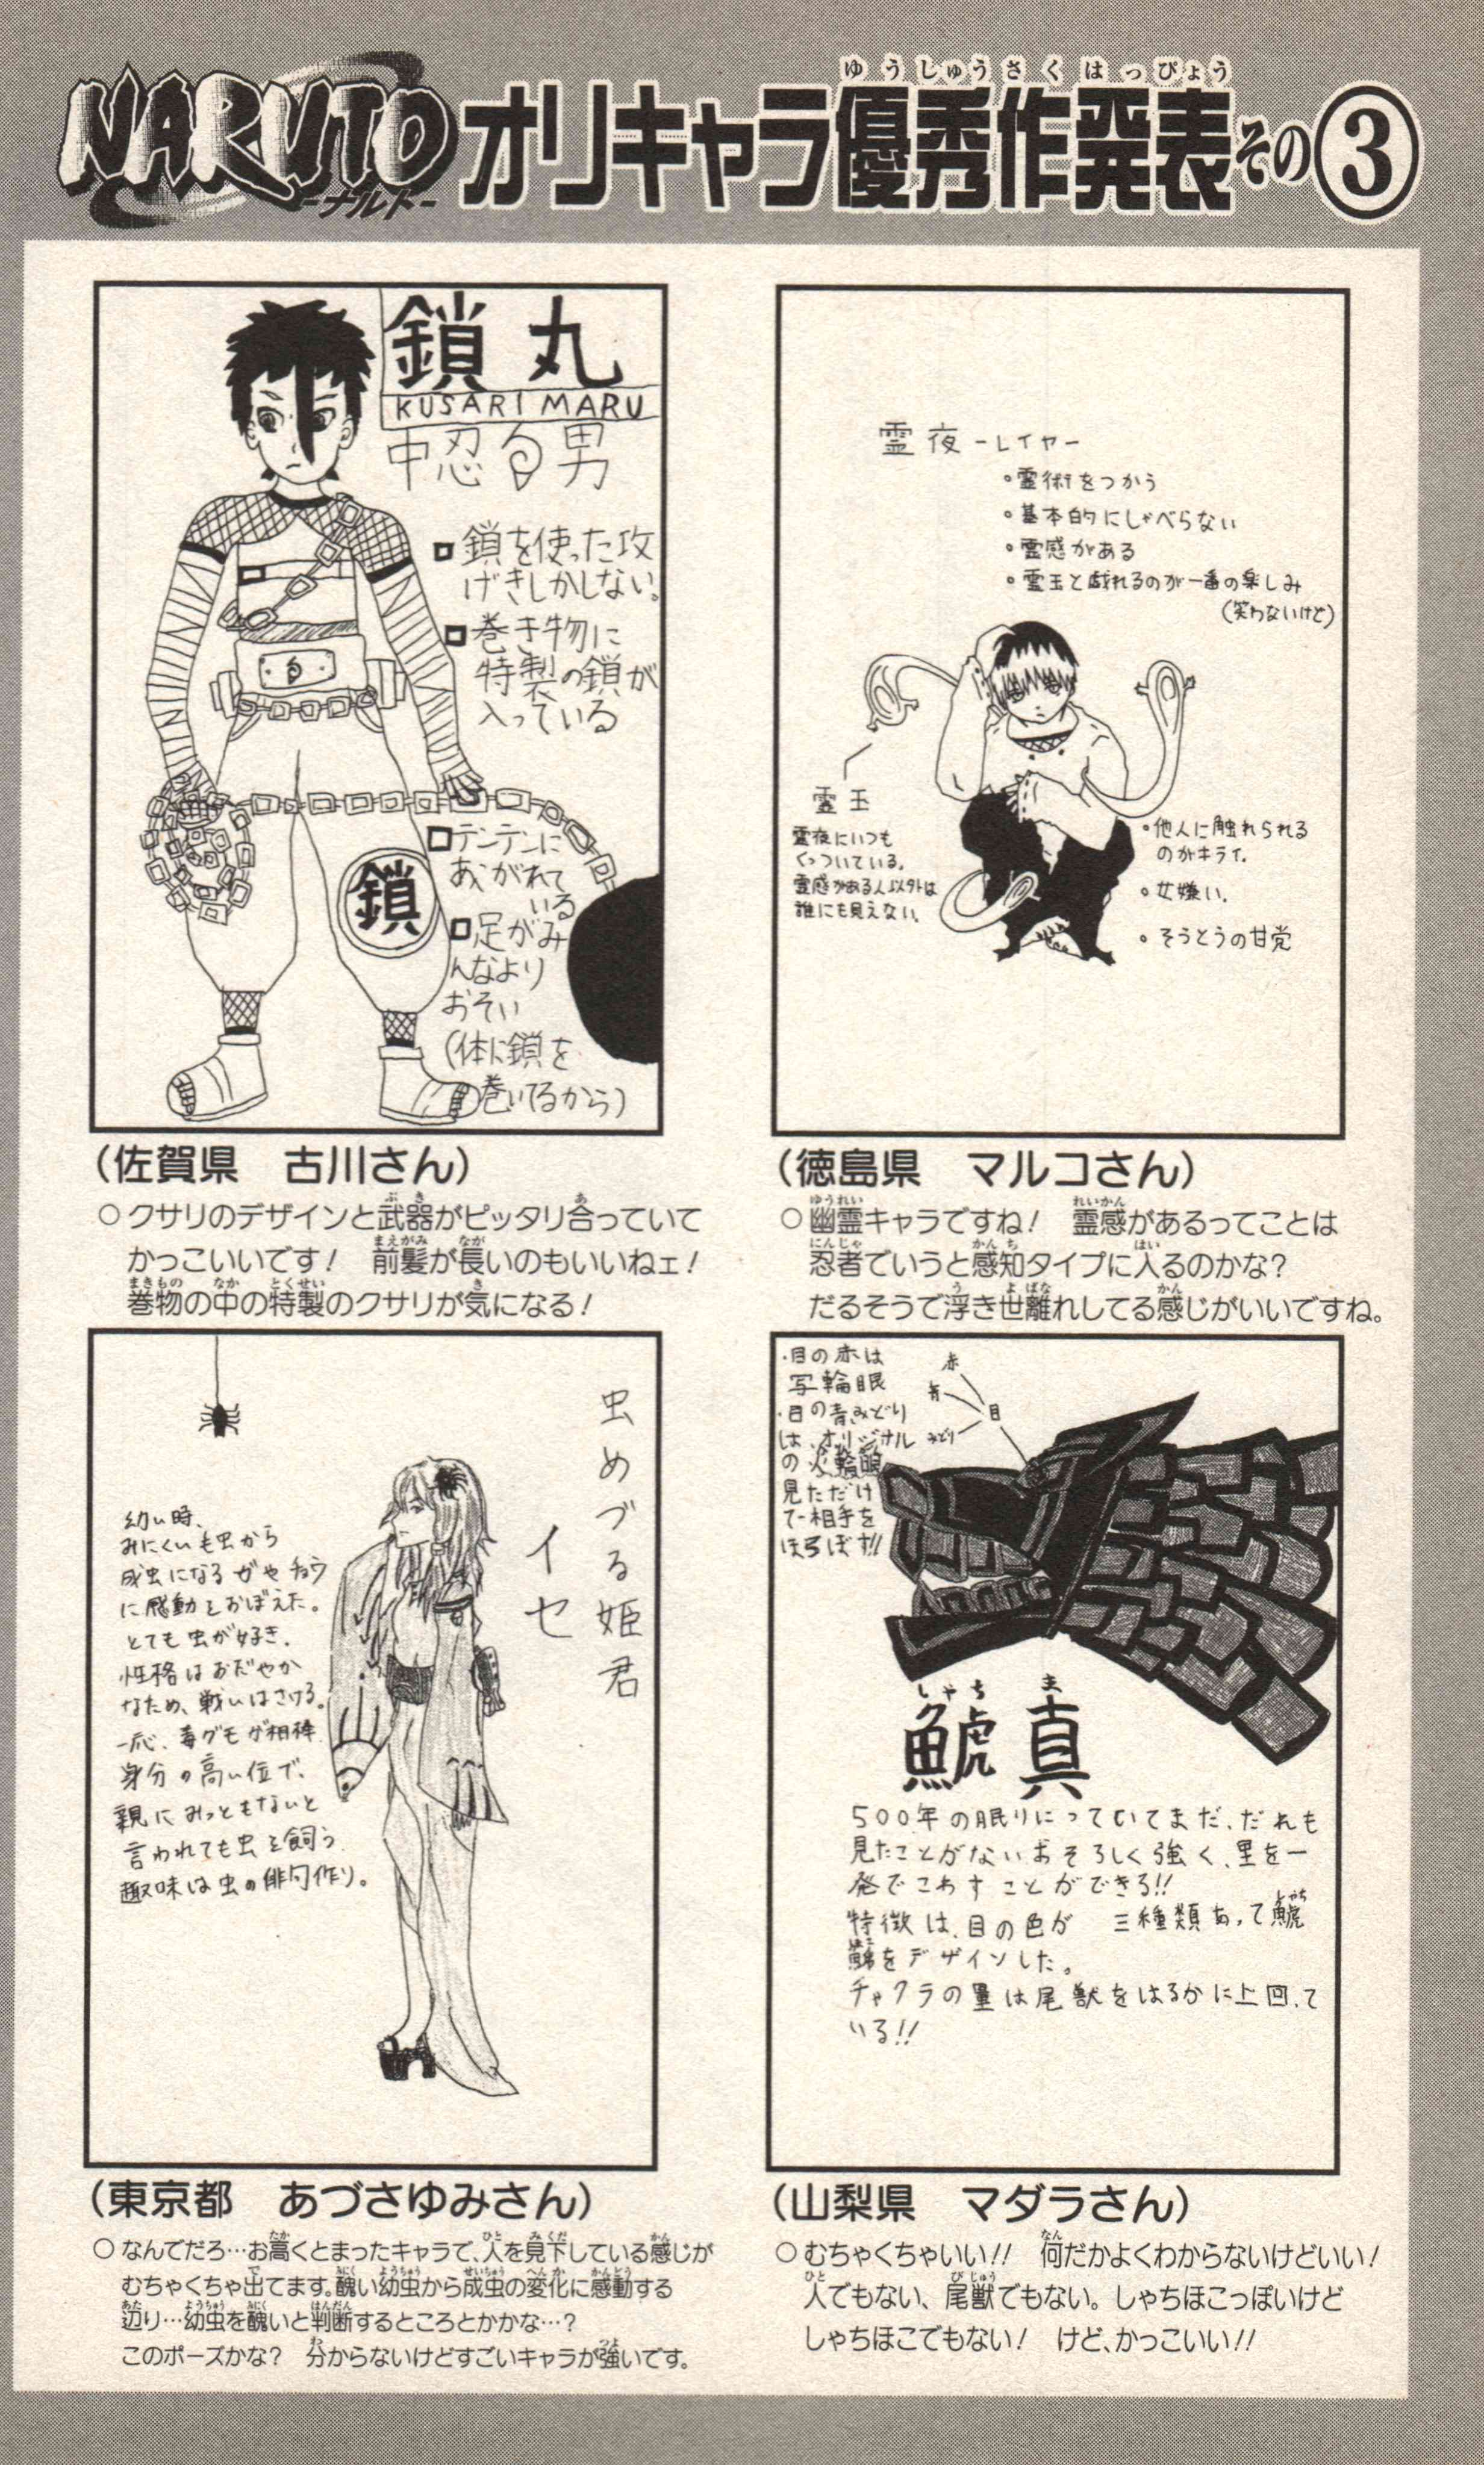 NARUTO
-ナルト-
オリキャラ優秀作発表その③
ゆうしゅうさくはっぴょう
鎖丸
KUSARI MARU
中忍 男
鎖を使った攻
げきしかしない。
巻き物に
特製の鎖が
入っている
テンテンに
あこがれて
いる
足がみ
んなより
おそい
(体に鎖を
巻いてるから)
鎖
(佐賀県 古川さん)
○クサリのデザインと武器がピッタリ合っていて
かっこいいです! 前髪が長いのもいいねェ!
巻物の中の特製のクサリが気になる!
霊夜-レイヤ-
・霊術をつかう
・基本的にしゃべらない
・霊感がある
・霊玉と戯れるのが一番の楽しみ
(笑わないけど)
霊玉
霊夜にいつも
くっついている。
霊感がある人以外は
誰にも見えない。
・他人に触れられる
のがキライ。
・女嫌い。
・そうとうの甘党
(徳島県 マルコさん)
○幽霊キャラですね! 霊感があるってことは
忍者でいうと感知タイプに入るのかな?
だるそうで浮き世離れしてる感じがいいですね。
虫めづる姫君
イセ
幼い時、
みにくい毛虫から
成虫になるガやチョウ
に感動をおぼえた。
とても虫が好き。
性格はおだやか
なため、戦いはさける。
一応、毒グモが相棒
身分の高い位で、
親にみっともないと
言われても虫を飼う
趣味は虫の俳句作り。
(東京都 あづさゆみさん)
○なんでだろ…お高くとまったキャラで、人を見下している感じが
むちゃくちゃ出てます。醜い幼虫から成虫の変化に感動する
辺り…幼虫を醜いと判断するところとかかな…?
このポーズかな? 分からないけどすごいキャラが強いです。
・目の赤は
写輪眼
・目の青みどり
は、オリジナル
の火輪眼
見ただけ
で相手を
ほろぼす!!
赤
青
みどり
目
しゃち ま
鯱真
500年の眠りについていてまだ、だれも
見たことがないおそろしく強く、里を一
発でこわすことができる!!
特徴は、目の色が 三種類あって鯱
をデザインした。
チャクラの量は尾獣をはるかに上回って
いる!!
(山梨県 マダラさん)
○むちゃくちゃいい!! 何だかよくわからないけどいい!
人でもない、尾獣でもない。しゃちほこっぽいけど
しゃちほこでもない! けど、かっこいい!!